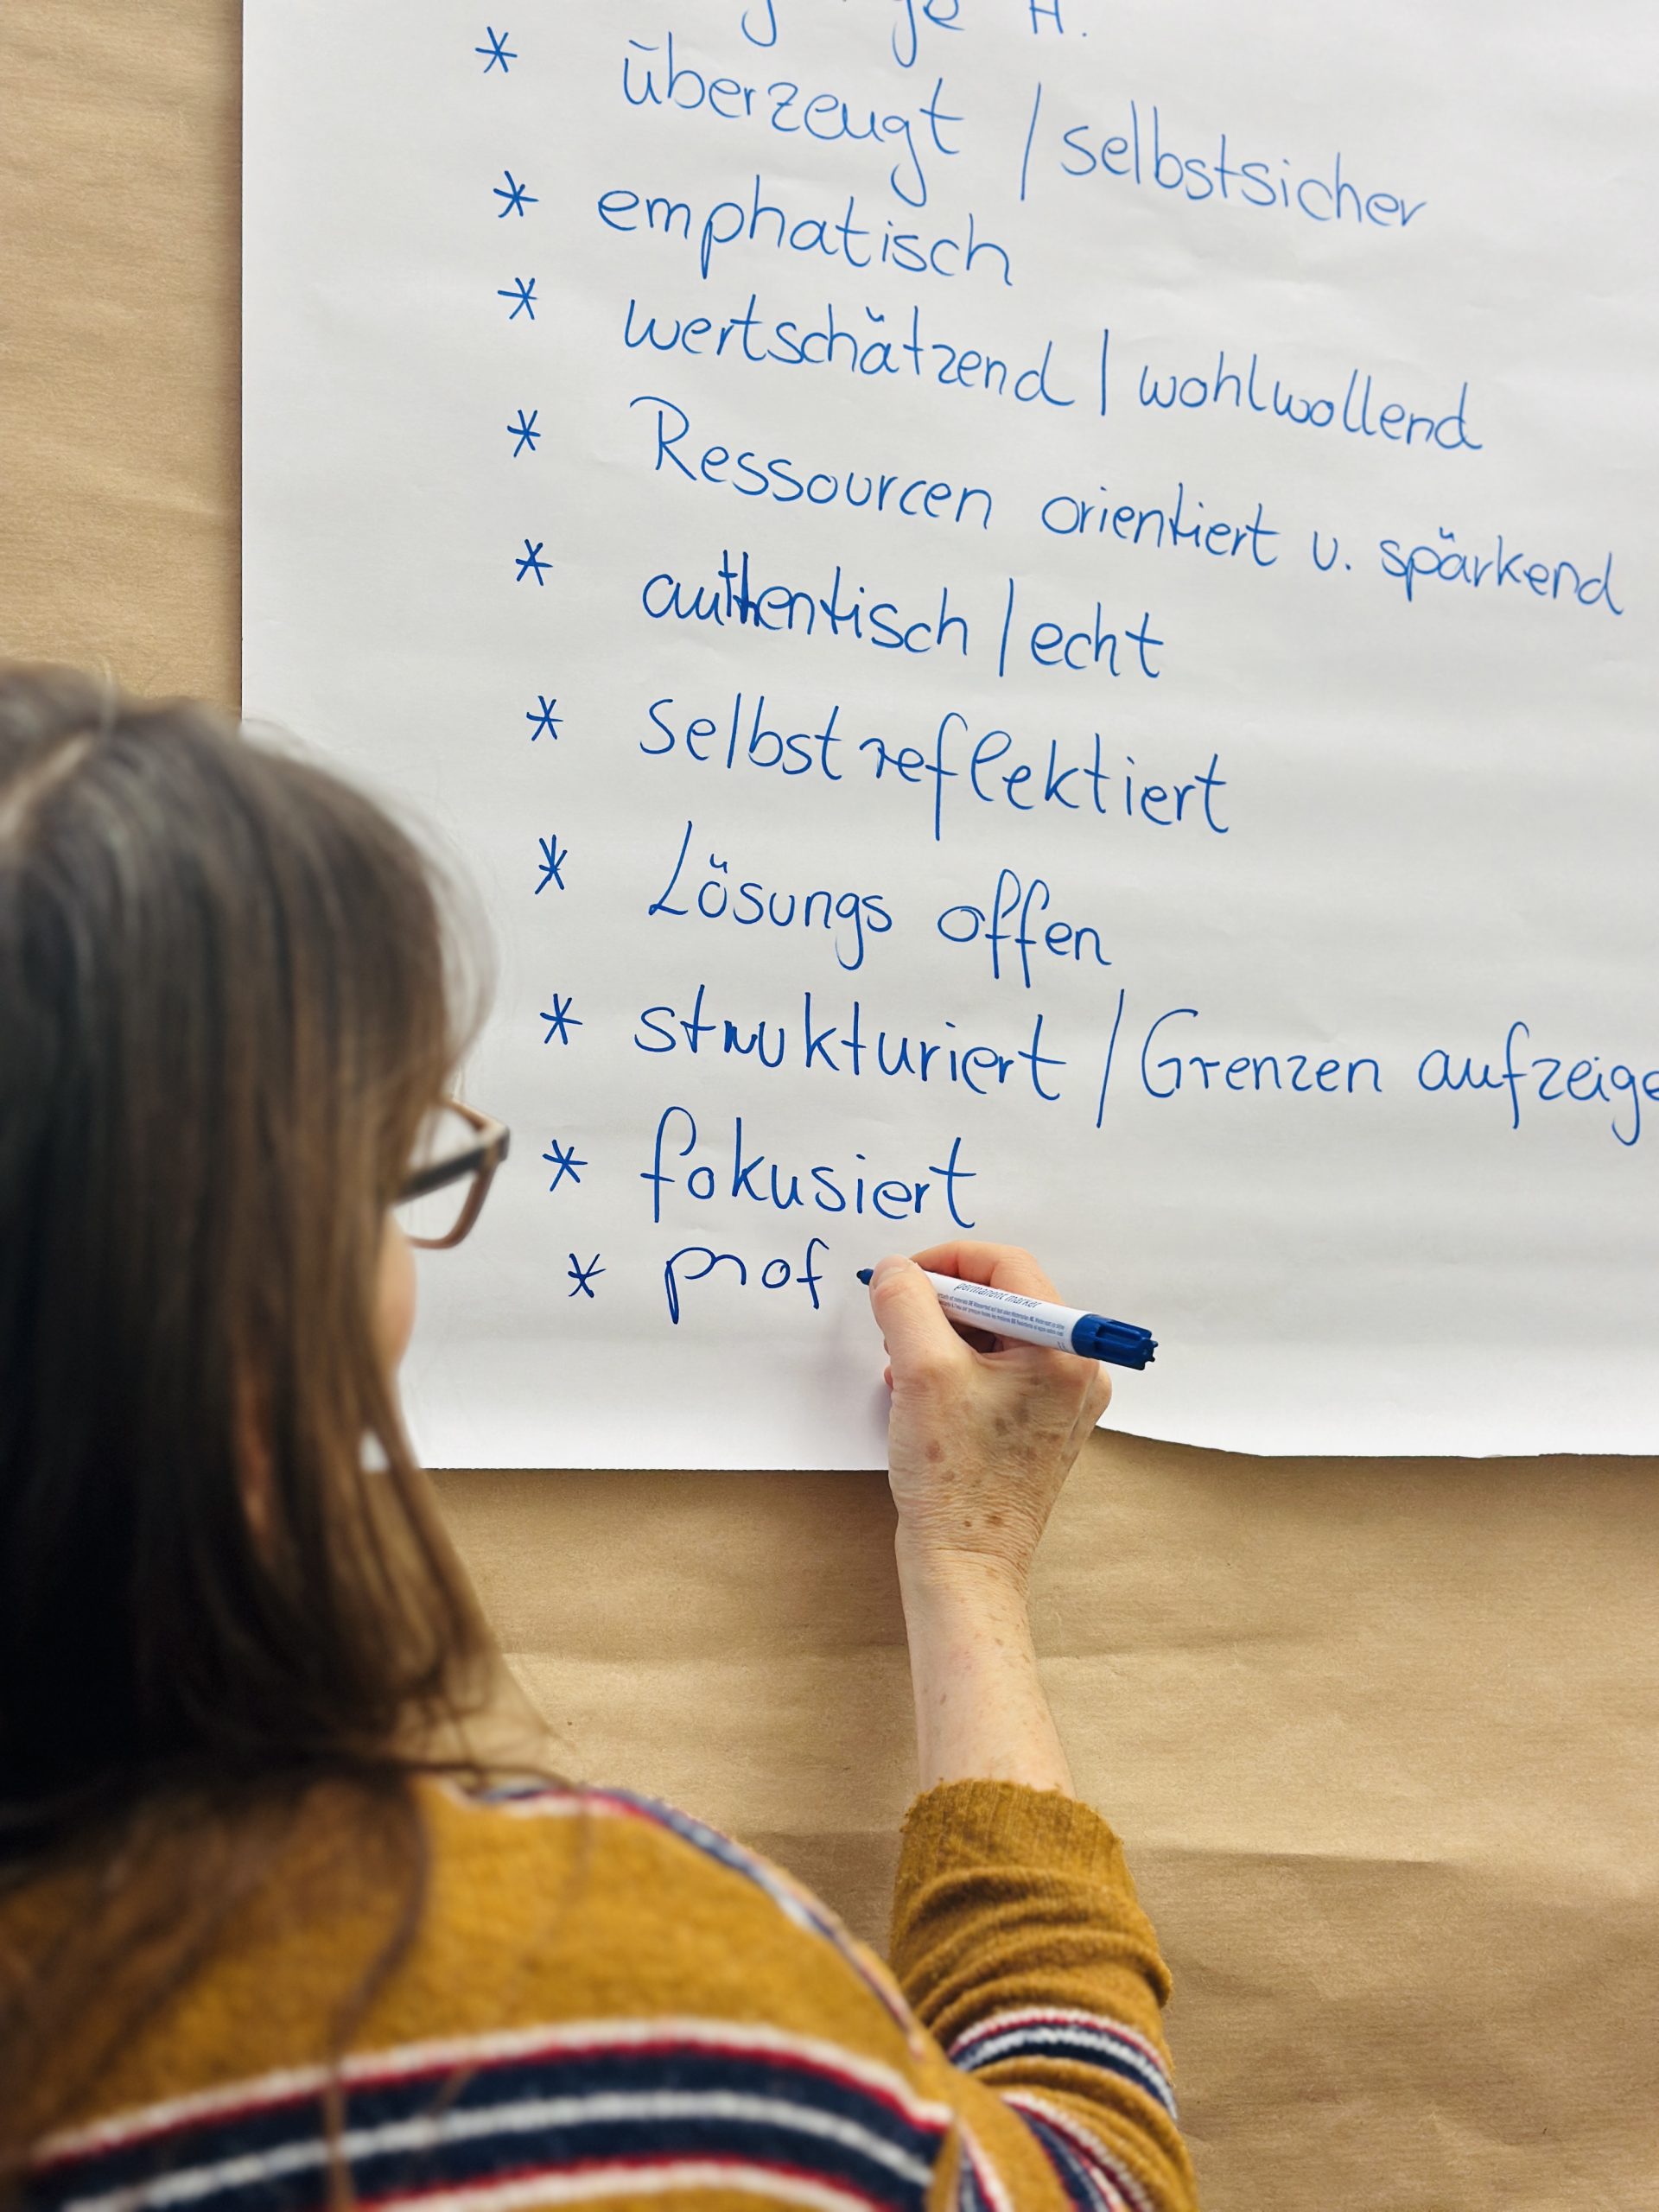 * überzeugt / selbstsicher
* emphatisch
* wertschätzend / wohlwollend
* Ressourcen orientiert u. spärkend
* authentisch / echt
* selbstreflektiert
* Lösungs offen
* strukturiert / Grenzen aufzeige
* fokusiert
* prof
permanent marker